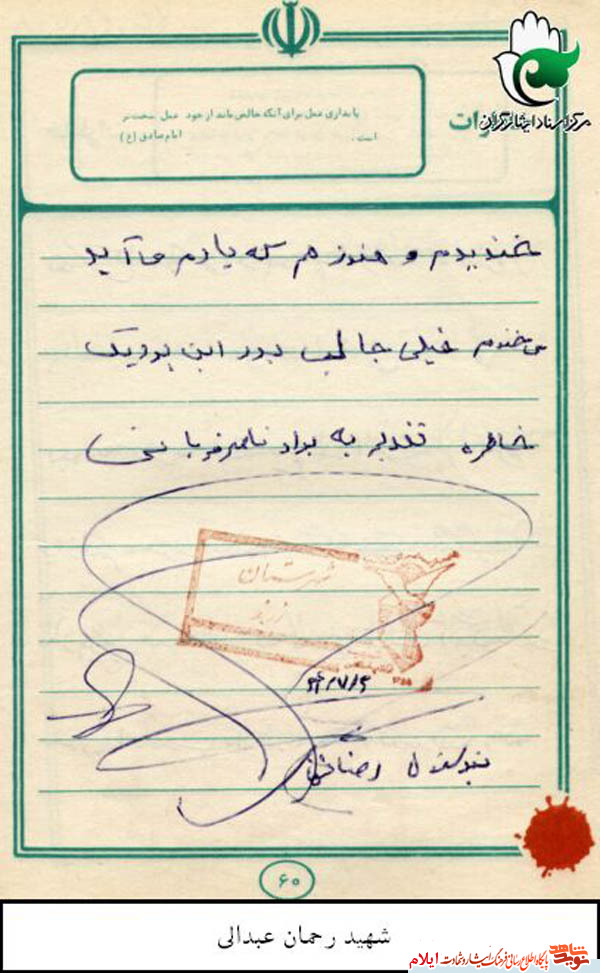 مرکز اسناد ایثارگران
پایداری عمل برای آنکه خالص ماند از خود عمل سخت تر
است. امام صادق (ع)
خندیدم و هنوز هم که یادم می آید
می خندم خیلی جالب بود این بود یک
خاطره تقدیم به برادر ناصر قربانی
شهرستان
۶۴/۷/۴
رضا
۶۰
شهید رحمان عبدالی
نوید شاهد
پایگاه اطلاع رسانی فرهنگ ایثار و شهادت ایلام